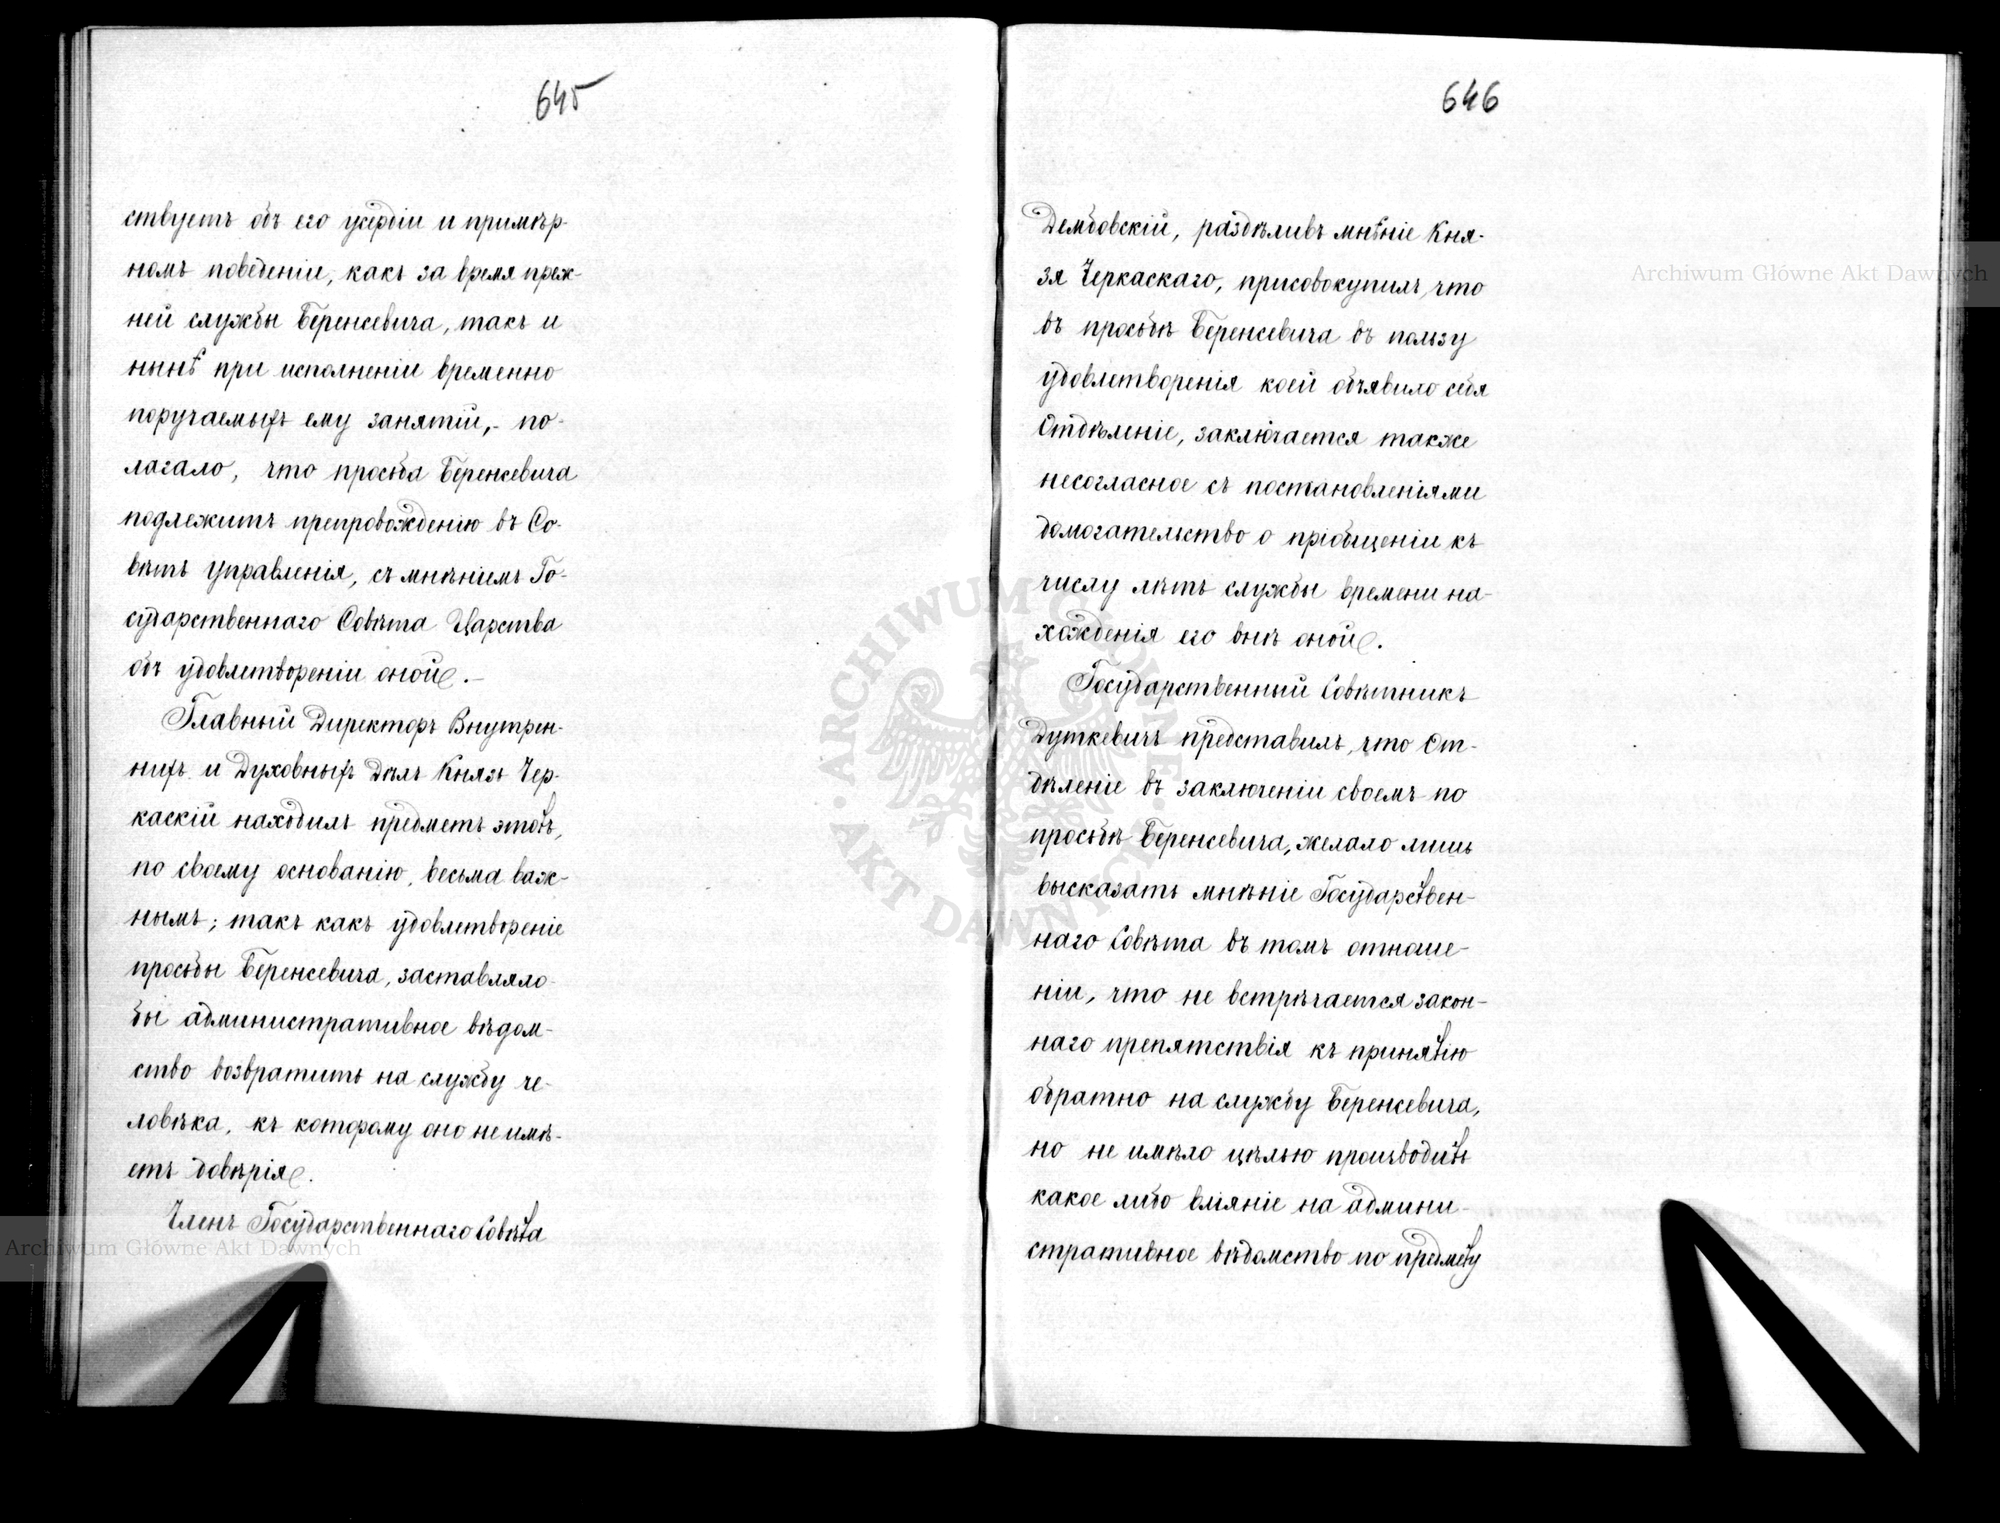 645
ствуетъ объ его усердіи и примѣр-
номъ поведеніи, какъ за время преж-
ней службы Беренсевича, такъ и
нынѣ при исполненіи временно
поручаемыхъ ему занятій, - по-
лагало, что просьба Беренсевича
подлежитъ препровожденію въ Со-
вѣтъ Управленія, съ мнѣніемъ Го-
сударственнаго Совѣта Царства
объ удовлетвореніи оной. -
Главный Директоръ Внутрен-
нихъ и Духовныхъ Дѣлъ Князь Чер-
каскій находилъ предметъ этотъ,
по своему основанію, весьма важ-
нымъ; такъ какъ удовлетвореніе
просьбы Беренсевича, заставляло-
бы административное вѣдом-
ство возвратить на службу че-
ловѣка, къ которому оно не имѣ-
етъ довѣрія.
Членъ Государственнаго Совѣта
646
Дембовскій, раздѣливъ мнѣніе Кня-
зя Черкаскаго, присовокупилъ, что
въ просьбѣ Беренсевича въ пользу
удовлетворенія коей объявило себя
Отдѣленіе, заключается также
несогласное съ постановленіями
домогательство о пріобщеніи къ
числу лѣтъ службы времени на-
хожденія его внѣ оной.
Государственный Совѣтникъ
Дуткевичъ представилъ, что От-
дѣленіе въ заключеніи своемъ по
просьбѣ Беренсевича, желало лишь
высказать мнѣніе Государствен-
наго Совѣта въ томъ отноше-
ніи, что не встрѣчается закон-
наго препятствія къ принятію
обратно на службу Беренсевича,
но не имѣло цѣлью производить
какое либо вліяніе на админи-
стративное вѣдомство по предмету
Archiwum Główne Akt Dawnych
Archiwum Główne Akt Dawnych
ARCHIWUM GŁÓWNE · AKT DAWNYCH ·